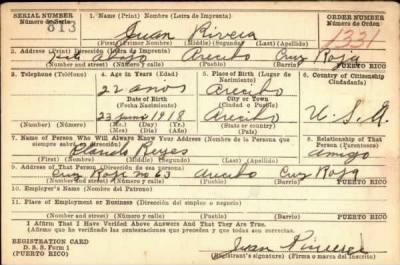 SERIAL NUMBER 1. Name (Print) Nombre (Letra de Imprenta) ORDER NUMBER
Número de Serie Número de Orden
813 Juan Rivera 1321
(First) (Primer Nombre) (Middle) (Segundo) (Last) (Apellido)
2. Address (Print) Dirección (Letra de Imprenta)
Abajo Arecibo Cruz Roja
(Number and street) (Número y calle) (Pueblo) (Barrio) PUERTO RICO
3. Telephone (Teléfono) 4. Age in Years (Edad) 5. Place of Birth (Lugar de Nacimiento) 6. Country of Citizenship Ciudadanía
22 años Arecibo
Date of Birth City or Town
(Fecha Nacimiento) (Ciudad o Pueblo)
23 junio 1918 Arecibo U.S.A.
(Number) (Número) (Mo.) (Day) (Yr.) (State or country)
(Mes) (Día) (Año) (País)
7. Name of Person Who Will Always Know Your Address (Nombre de la Persona que siempre sabrá su dirección) 8. Relationship of That Person (Parentesco)
Reyes Amigo
(First) (Nombre) (Middle) (Segundo) (Last) (Apellido)
9. Address of That Person (Dirección de esa persona)
Cruz Roja no 63 Arecibo Cruz Roja
(Number and street) (Número y calle) (Pueblo) (Barrio) PUERTO RICO
10. Employer's Name (Nombre del Patrono)
11. Place of Employment or Business (Dirección del empleo o negocio)
(Number and street) (Número y calle) (Pueblo) (Barrio) PUERTO RICO
I Affirm That I Have Verified Above Answers And That They Are True.
(Afirmo que he verificado las contestaciones que preceden y que todas son correctas.
REGISTRATION CARD
D. S. S. Form 1 Juan
(PUERTO RICO) (Registrant's signature) (Firma o marca del inscrito)